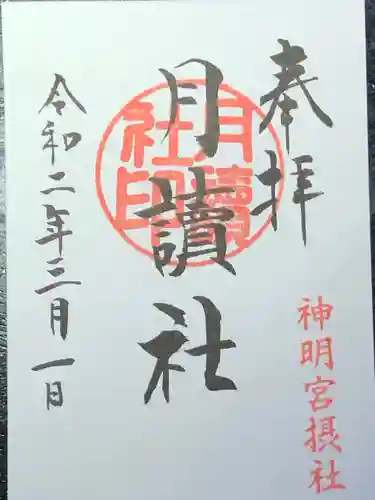 奉拝
月讀社
月讀社印
令和二年三月一日
神明宮摂社